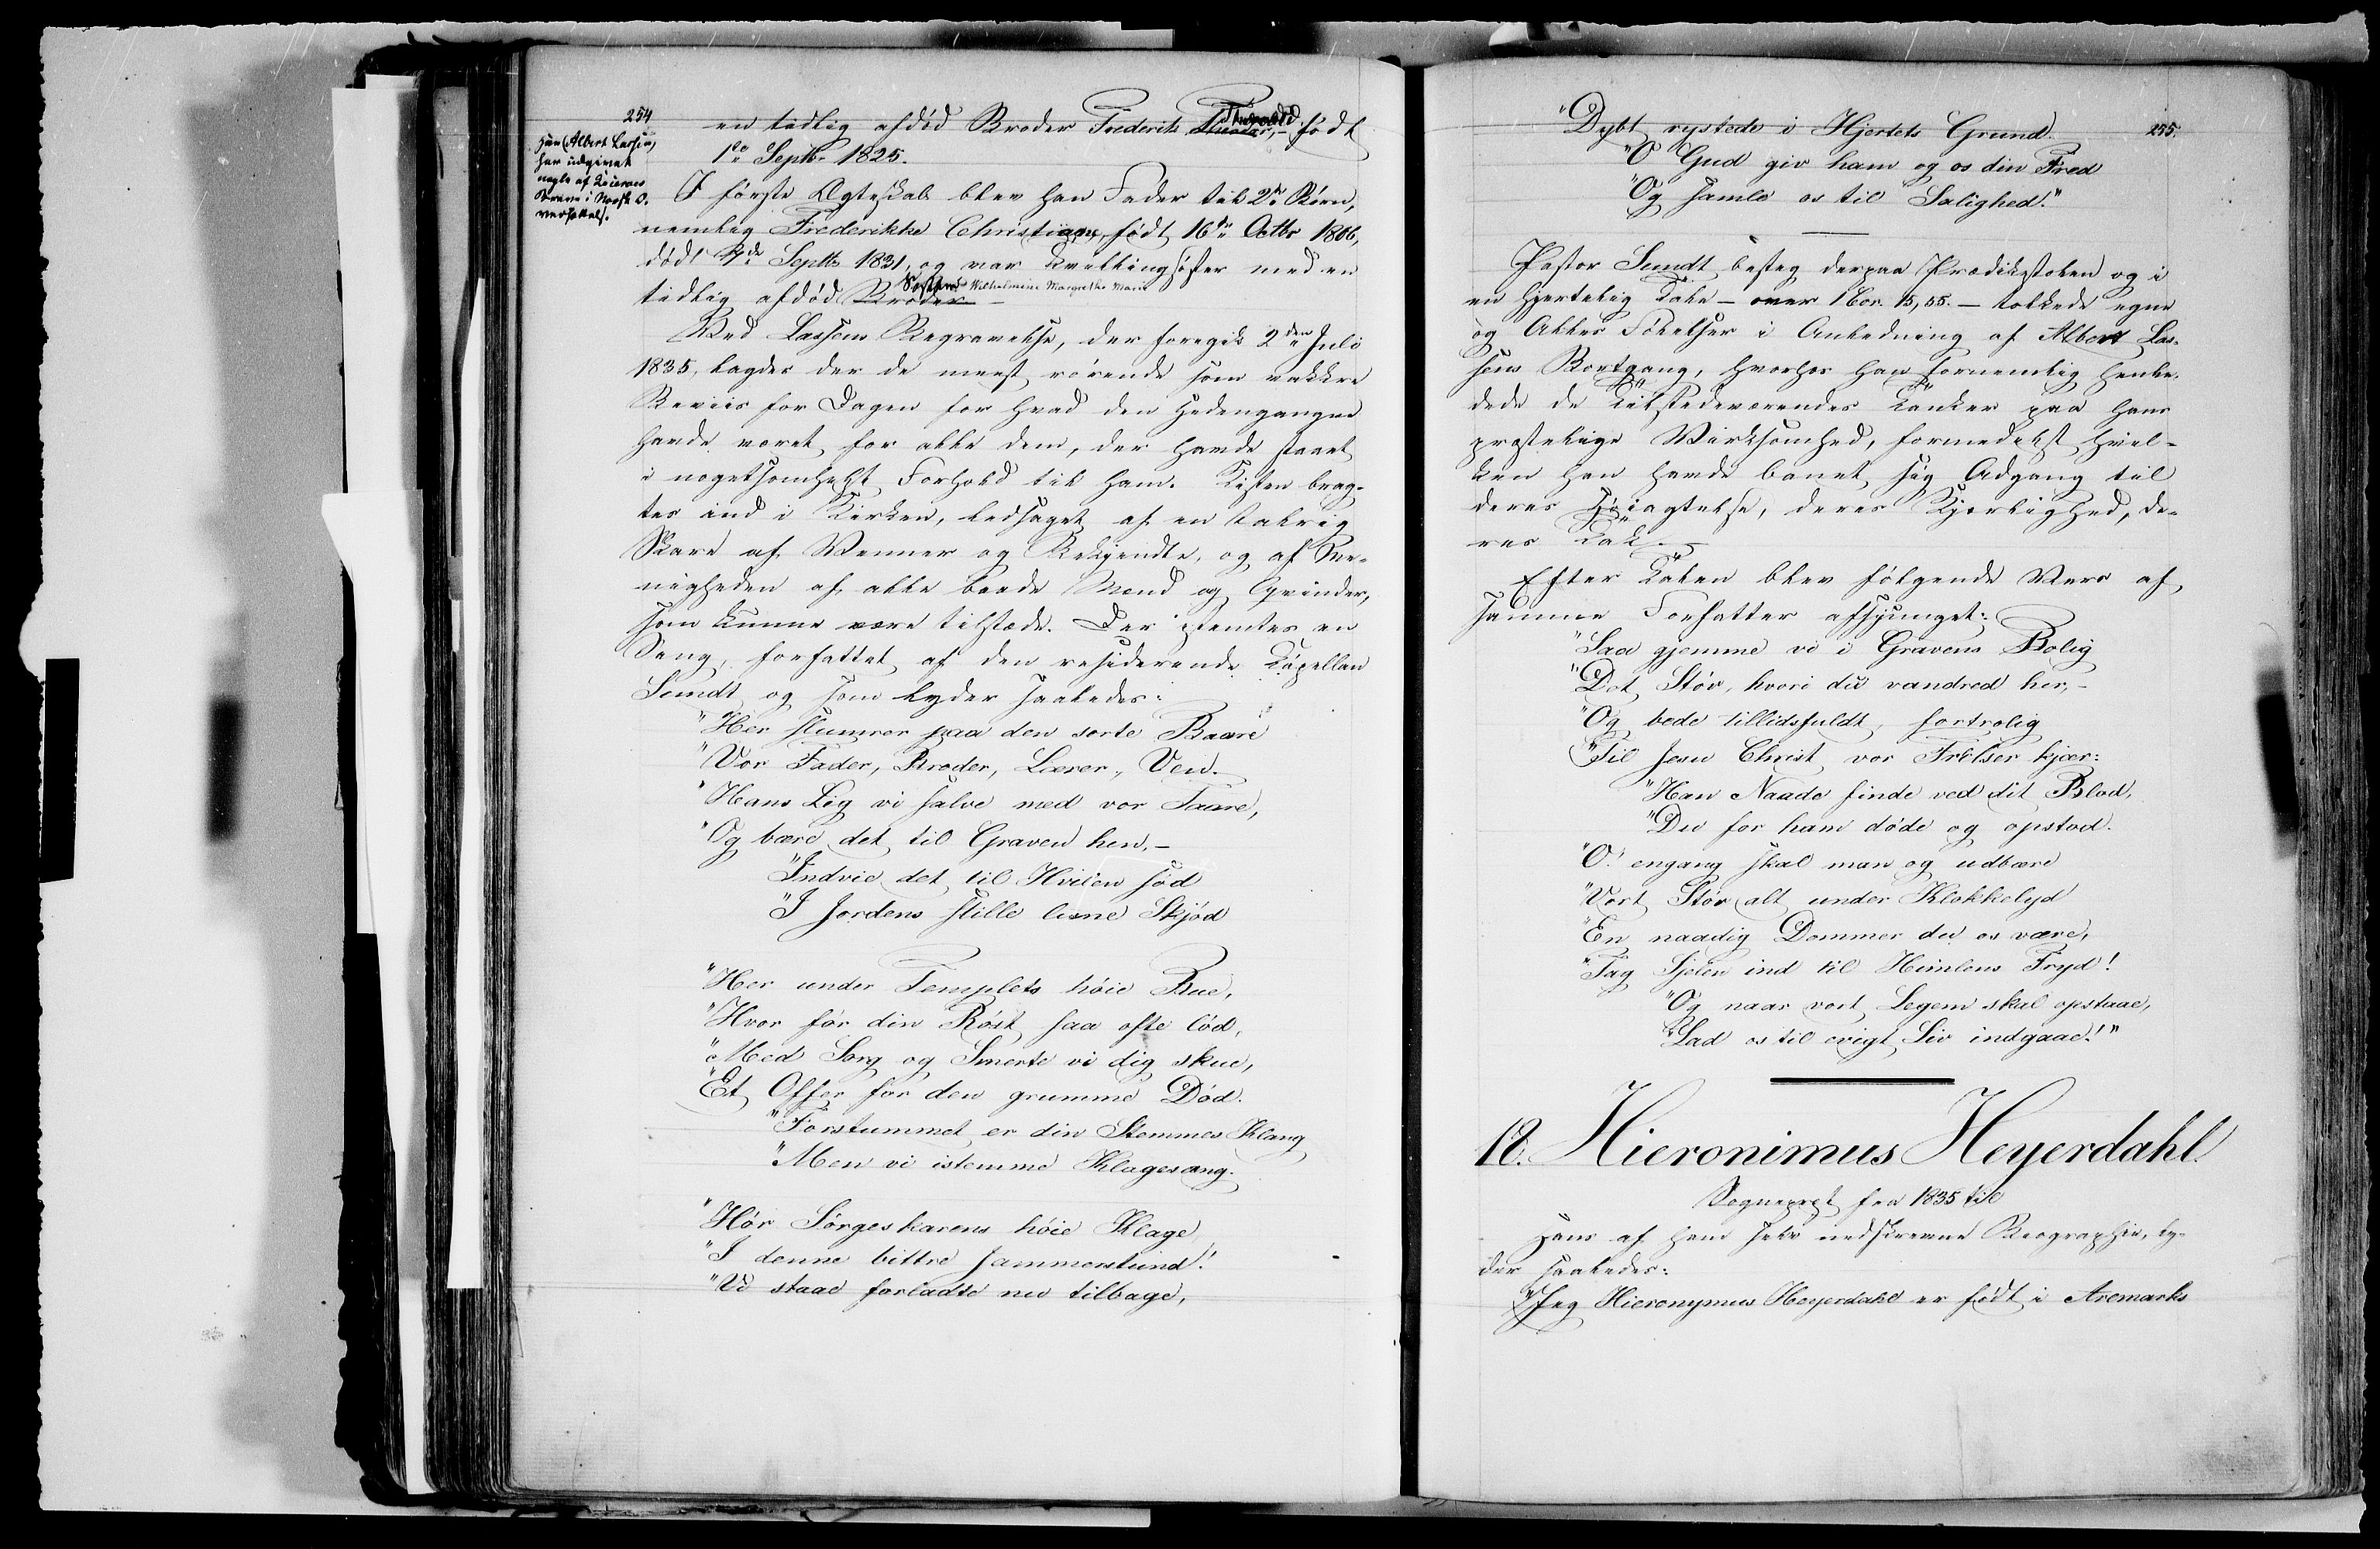 254
Han (Albert Lassen,)
har udgivet
nogle af Ciceros
Breve i Norsk O-
versættelse.
en tidlig afdød Broder Frederik Theodor, Thorvald – født
1ste Septbr 1825.
I første Ægteskab blev han Fader til 2de Børn,
nemlig Frederikke Christiane, født 16de Octbr 1806,
død 4de Septbr 1831, og var Tvillingsøster med en
tidlig afdød Broder Søster Wilhelmine Margrethe Marie –
Ved Lassens Begravelse, der foregik 2den Juli
1835, lagdes der de meest rørende som vakkre
Beviis for Dagen for hvad den Hedengangne
havde været for alle dem, der havde staaet
i nogetsomhelst Forhold til ham. Kisten brag-
tes ind i Kirken, ledsaget af en talrig
Skare af Venner og Bekjendte, og af Me-
nigheden af alle baade Mænd og Qvinder,
som kunne være tilstæde. Der istemtes en
Sang, forfattet af den residerende Capellan
Sundt og som lyder saaledes:
"Her slumrer paa den sorte Baare
"Vor Fader, Broder, Lærer, Ven.
"Hans Lig vi salve med vor Taare,
"Og bære det til Graven hen, –
"Indvie det til Hvilen sød
"I Jordens stille lune Skjød
"Her under Templets høie Bue,
"Hvor før din Røst saa ofte lød,
"Med Sorg og Smerte vi dig skue,
"Et Offer for den grumme Død.
"Forstummet er din Stemmes Klang
"Men vi istemme Klagesang.
"Hør Sørgeskarens høie Klage
"I denne bittre Jammerstund!
"Vi staae forladte nu tilbage,
255.
"Dybt rystede i Hjertets Grund.
"O Gud giv ham og os din Fred
"Og samle os til Salighed."
Pastor Sundt besteg derpaa Prædikestolen og i
en hjertelig Tale – over 1 Cor. 15, 55. – tolkede egne
og Alles Følelser i Anledning af Albert Las-
sens Bortgang, hvorhos han fornemlig henle-
dede de Tilstedeværendes Tanker paa hans
præstelige Virksomhed, formedelst hvil-
ken han havde banet sig Adgang til
deres Høiagtelse, deres Kjærlighed, de-
res Tak. –
Efter Talen blev følgende Vers af
samme Forfatter afsjunget:
"Saa gjemme vi i Gravens Bolig
"Det Støv, hvori du vandred her, –
"Og bede tillidsfuldt, fortrolig
"Til Jesu Christ vor Frelser kjær:
"Han Naade finde ved dit Blod,
"Du for ham døde og opstod.
"O! engang skal man og udbære
"Vort Støv alt under Klokkelyd
"En naadig Dommer du os være,
"Tag Sjelen ind til Himlens Fryd!
"Og naar vort Legem skal opstaae,
"Lad os til evigt Liv indgaae!"
18. Hieronimus Heyerdahl.
Sognepræst fra 1835 til
Hans af ham selv nedskrevne Biographie, ly-
der saaledes:
"Jeg Hieronymus Heyerdahl er født i Aremarks